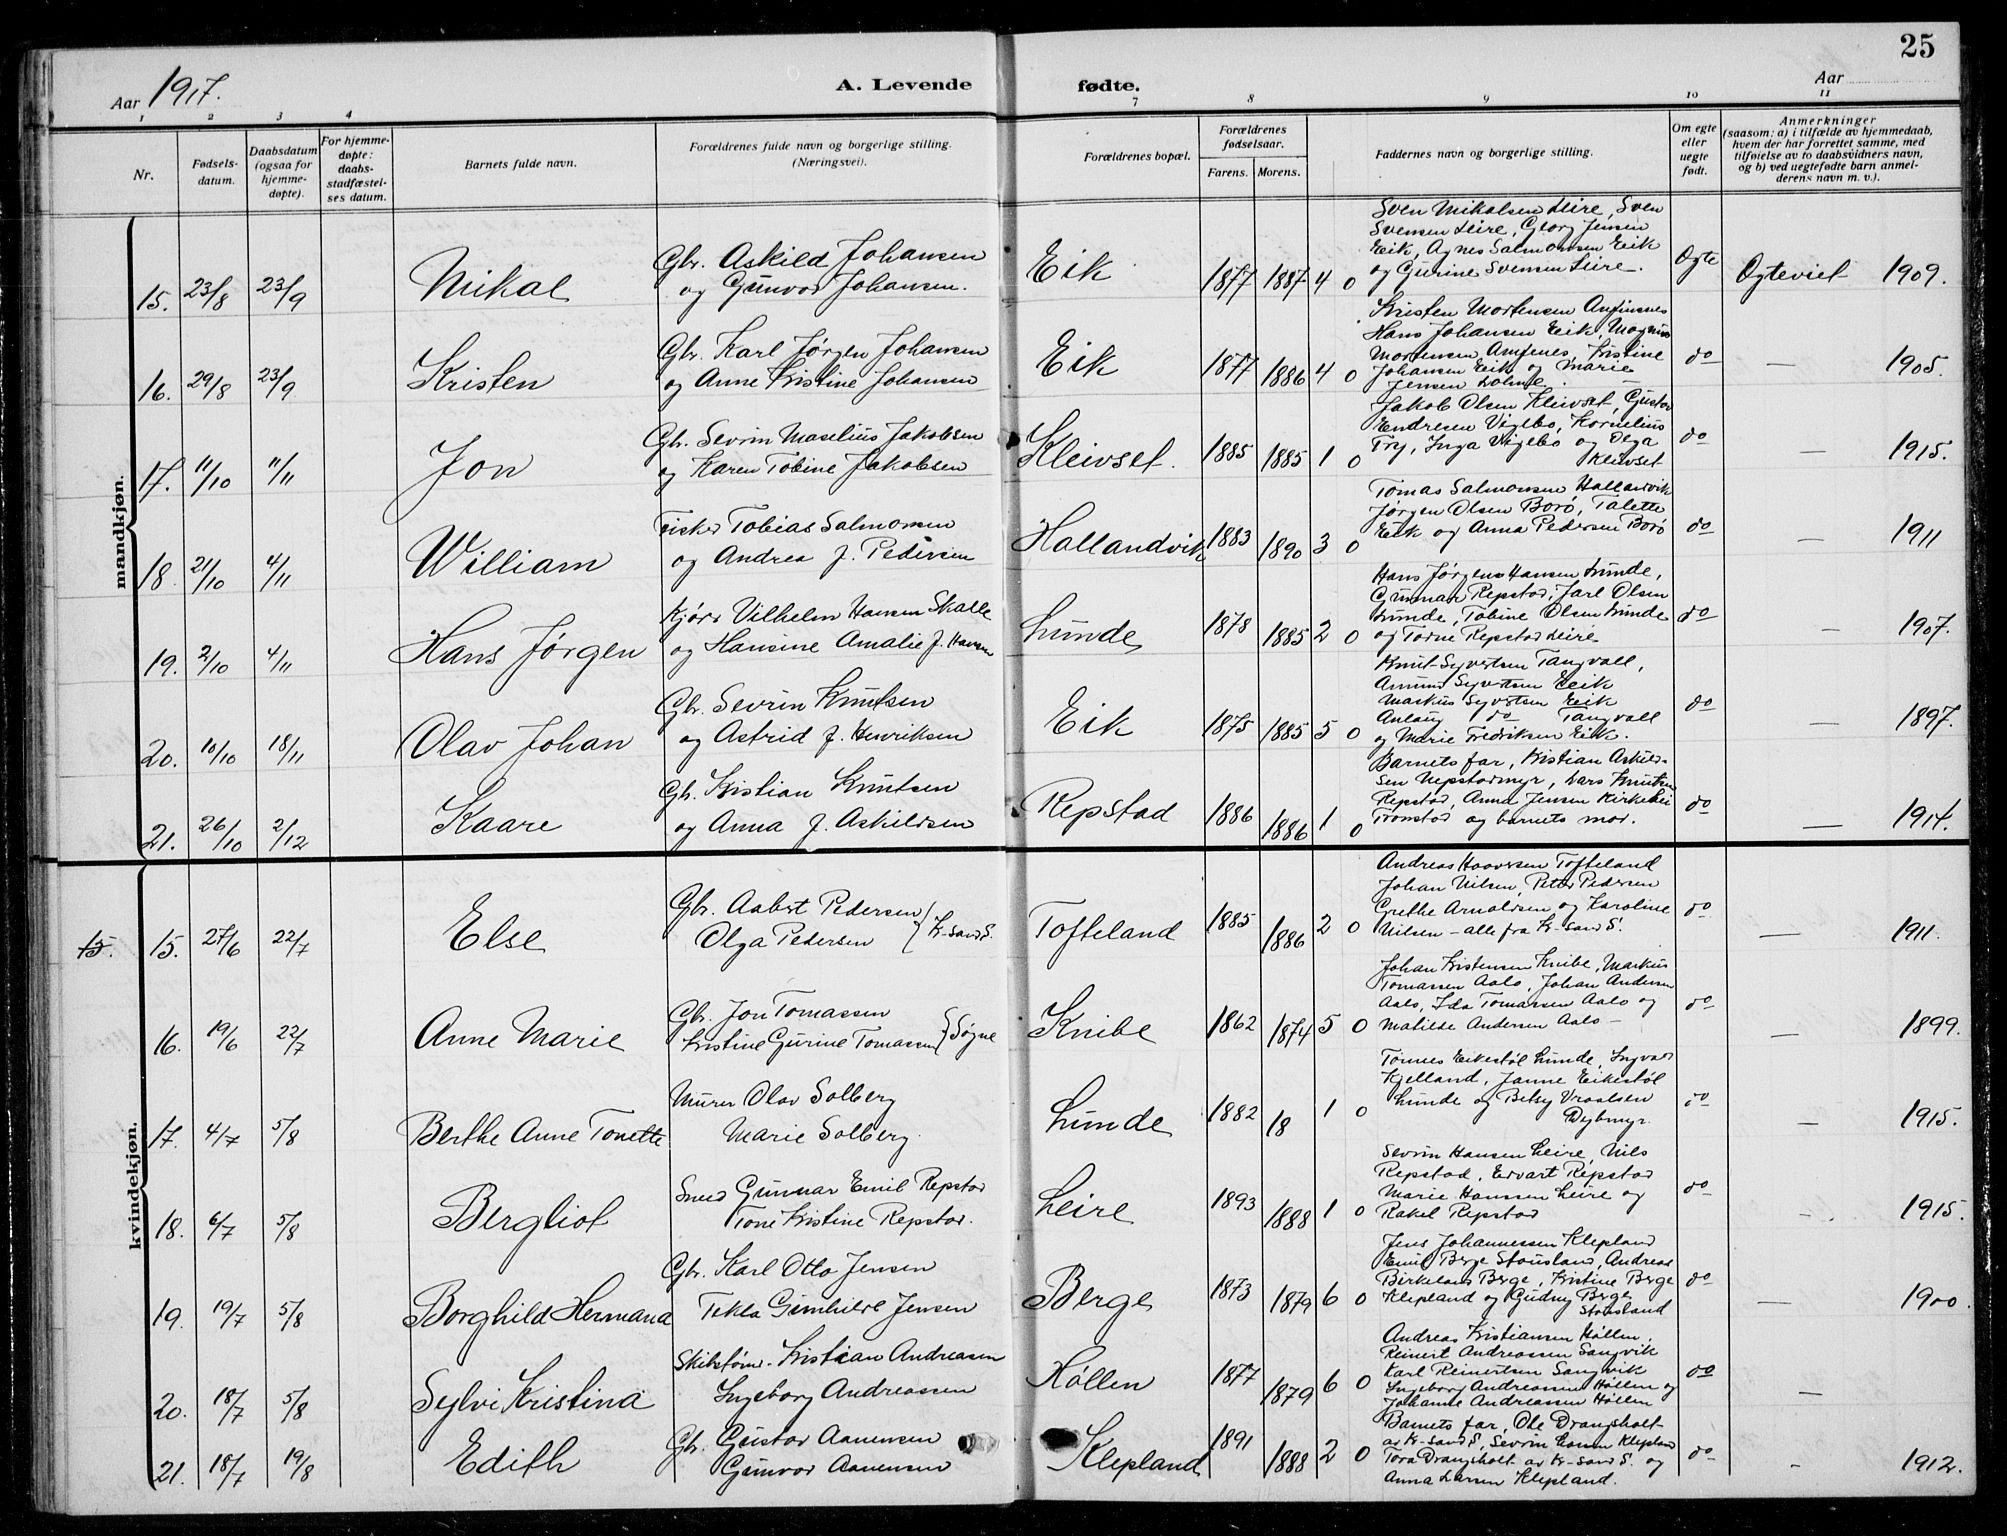 25
Aar 1917.
A. Levende fødte.
Aar
1 2 3 4 7 8 9 10 11
Nr.
Fødsels-
datum.
Daabsdatum
(ogsaa for
hjemme-
døpte).
For hjemme-
døpte:
daabs-
stadfæstel-
ses datum.
Barnets fulde navn.
Forældrenes fulde navn og borgerlige stilling.
(Næringsvei).
Forældrenes bopæl.
Forældrenes
fødselsaar.
Farens. Morens.
Faddernes navn og borgerlige stilling.
Om egte
eller
uegte
født.
Anmerkninger
(saasom: a) i tilfælde av hjemmedaab,
hvem der har forrettet samme, med
tilføielse av to daabsvidners navn,
og b) ved uegtefødte barn anmel-
derens navn m. v.).
mandkjøn.
15. 23/8 23/9 Nikal
Gbr. Askild Johansen
og Gunvor Johansen.
Eik 1877 1887 4 0
Sven Nikalsen Leire, Sven
Svensen Leire, Georg Jensen
Eik, Agnes Salmonsen Eik
og Gurine Svensen Leire.
Egte Egteviet 1909.
16. 29/8 23/9 Kristen
Gbr. Karl Jørgen Johansen
og Anne Kristine Johansen
Eik 1877 1886 4 0
Kristen Mortensen Amfinnes
Hans Johansen Eik Magnus
Mortensen Amfenes, Kristine
Johansen Eik og Marie
Jensen
do — 1905.
17. 11/10 11/11 Jon
Gbr. Sevrin Maselius Jakobsen
og Karen Tobine Jakobsen
Kleivset. 1885 1885 1 0
Jakob Olsen Kleivset, Gustav
Endresen Vigebo, Kornelius
Try, Inga Vigebo og Olga
Kleivset
do — 1915.
18. 21/10 4/11 William
Fisker Tobias Salmonsen
og Andrea f. Pedersen
Hallandvik 1883 1890 3 0
Tomas Salmonsen Hallandvik
Jørgen Olsen Borø, Talette
Eik og Anna Pedersen Borø
do — 1911
19. 2/10 4/11 Hans Jørgen
Kjørs Vilhelm Hansen Skalle
og Hansine Amalie f. Hansen
Lunde 1878 1885 2 0
Hans Jørgens Hansen Lunde,
Gunnar Repstad, Jarl Olsen
Lunde, Tobine Olsen Lunde
og Torne Repstad Leire
do — 1907.
20. 10/10 18/11 Olav Johan
Gbr. Sevrin Knutsen
og Astrid f. Henriksen
Eik 1875 1885 5 0
Knut Syvertsen Tangvall,
Amund Syvertsen Eik
Markus Syvertsen Eik
Anlaug do Tangvall
og Marie Fredriksen Eik.
do — 1897.
21. 26/10 2/12 Kaare
Gb. Kristian Knutsen
og Anna f. Askildsen
Repstad 1886 1886 1 0
Barnets far, Kristian Askild-
sen Repstadmyr, Lars Knutsen
Repstad, Anna Jensen Kirkehei
Tronstad og barnets mor.
do — 1914.
kvindekjøn.
15. 15. 27/6 22/7 Else
Gbr. Aabert Pedersen
Olga Pedersen } K-sand S.
Tofteland 1885 1886 2 0
Andreas Haaversen Tofteland
Johan Nilsen, Peter Pedersen
Grethe Arnoldsen og Karoline
Nilsen – alle fra K-sand S.
do — 1911.
16. 19/6 22/7 Anne Marie
Gb. Jon Tomassen
Kristine Gurine Tomassen } Søgne
Knibe 1862 1874 5 0
Johan Kristensen Knibe, Markus
Tomassen Aalo, Johan Andersen
Aalo, Ida Tomassen Aalo og
Matilde Andersen Aalo –
do — 1899.
17. 4/7 5/8 Berthe Anne Tonette
Murer Olav Solberg
Marie Solberg.
Lunde 1882 18 1 0
Tønnes Eikestøl Lunde, Ingvald
Kjelland, Janne Eikestøl
Lunde og Betsy Vraalsen
Dybmyr.
do — 1915.
18. 6/7 5/8 Bergliot
Smed Gunnar Emil Repstad
Tone Kristine Repstad.
Leire 1893 1888 1 0
Sevrin Hansen Leire, Nils
Repstad, Edvart Repstad
Marie Hanssen Leire og
Rakel Repstad
do — 1915.
19. 19/7 5/8 Borghild Hermana
Gbr. Karl Otto Jensen
Tekla Gunhilde Jensen
Berge 1873 1879 6 0
Jens Johannessen Klepland
Emil Berge Stousland, Andreas
Birkeland Berge, Kristine Berge
Klepland og Gudny Berge
Stousland
do — 1900.
20. 18/7 5/8 Sylvi Kristina
Skibstøm. Kristian Andreasen
Ingeborg Andreassen
Høllen 1877 1879 6 0
Andreas Kristiansen Høllen,
Reinert Andreassen Sangvik
Karl Reinertsen Sangvik
Ingeborg Andreassen Høllen og
Johanne Andreassen Høllen
do —
21. 18/7 19/8 Edith
Gb. Gustav Aanensen
Gunvor Aanensen
Klepland 1891 1888 2 0
Barnets far, Ole Drangsholt
av K-sand S, Sevrin Larsen Klepland
Tora Drangsholt av K-sand S. og
Anna Larsen Klepland.
do - 1912.